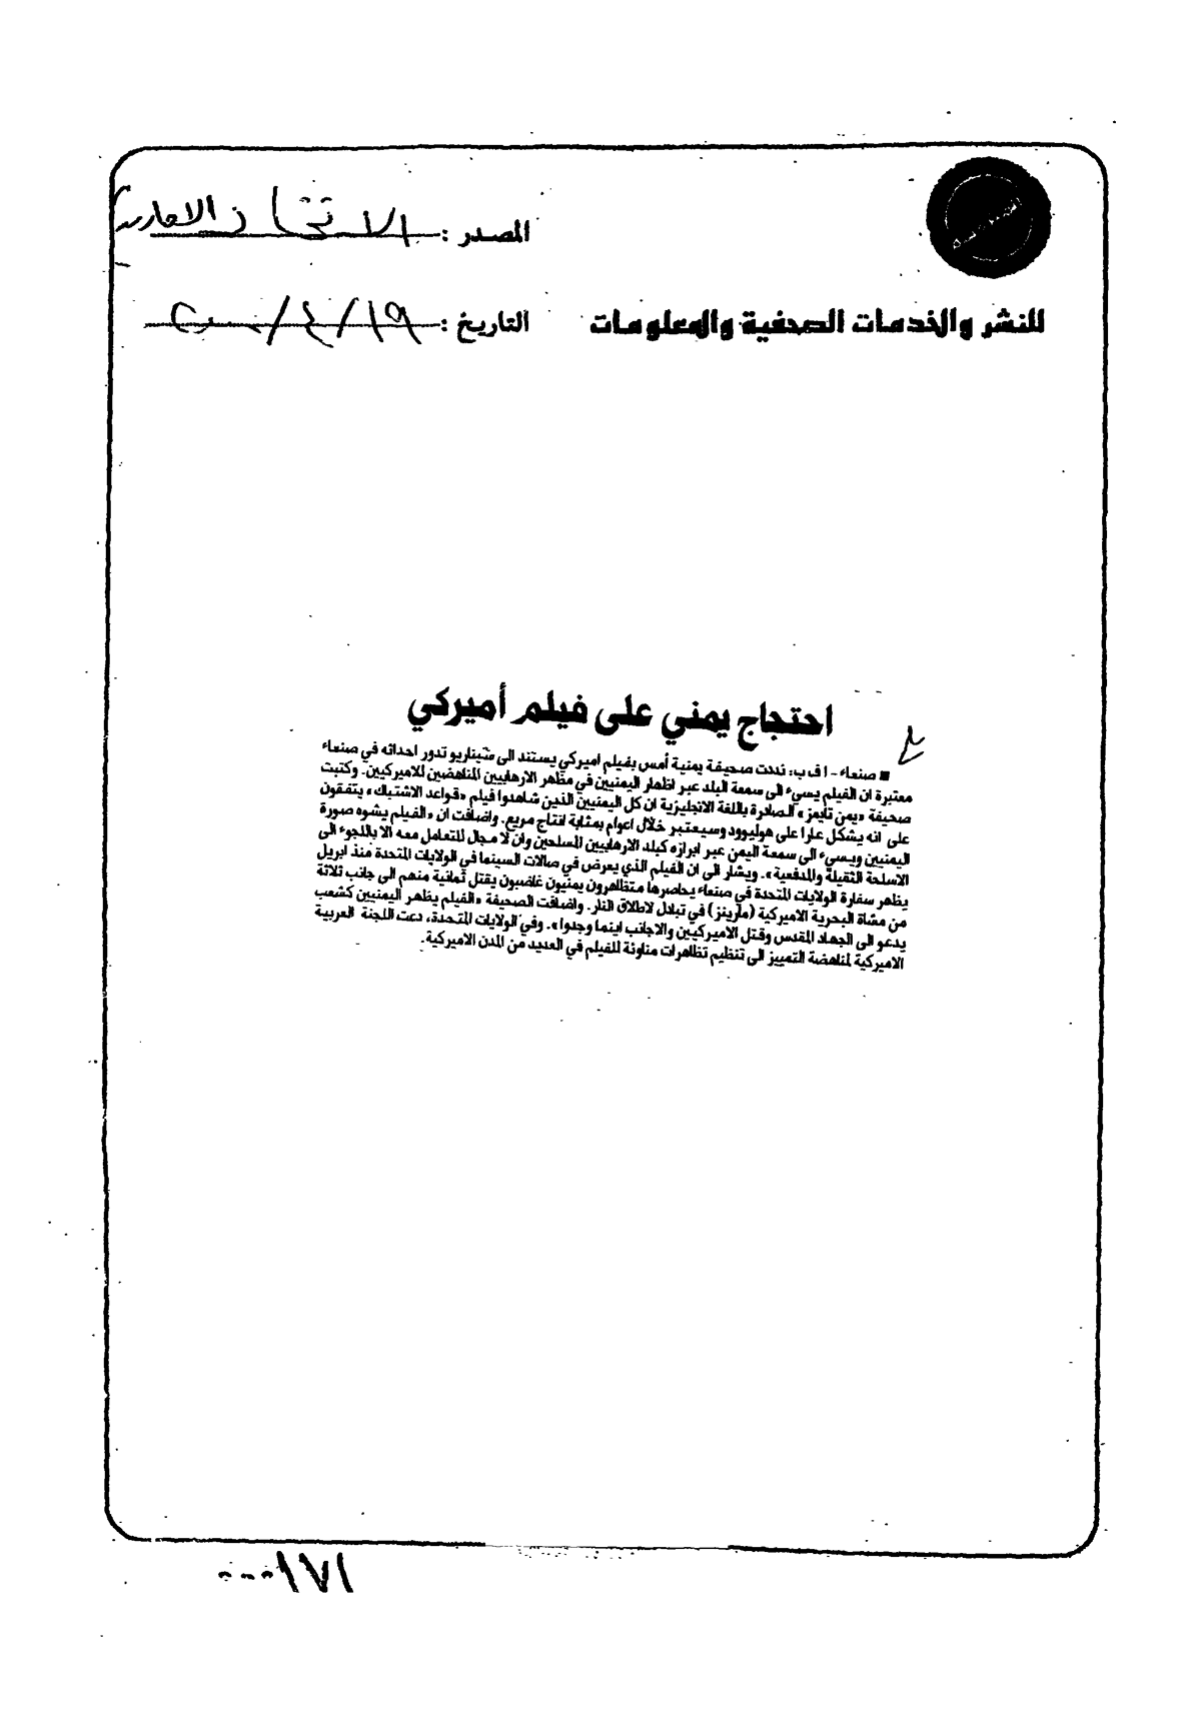 المصدر : الاتحاد الاماراتية
للنشر والخدمات الصحفية والمعلومات
التاريخ : ١٩/٤/٢٠٠٠
احتجاج يمني على فيلم أميركي
■ صنعاء - ا ف ب: نددت صحيفة يمنية أمس بفيلم اميركي يستند الى سيناريو تدور احداثه في صنعاء
معتبرة ان الفيلم يسيء الى سمعة البلد عبر اظهار اليمنيين في مظهر الارهابيين المناهضين للاميركيين. وكتبت
صحيفة «يمن تايمز» الصادرة باللغة الانجليزية ان كل اليمنيين الذين شاهدوا فيلم «قواعد الاشتباك» يتفقون
على انه يشكل عارا على هوليوود وسيعتبر خلال اعوام بمثابة انتاج مريع. واضافت ان «الفيلم يشوه صورة
اليمنيين ويسيء الى سمعة اليمن عبر ابرازه كبلد الارهابيين المسلحين وان لا مجال للتعامل معه الا باللجوء الى
الاسلحة الثقيلة والمدفعية». ويشار الى ان الفيلم الذي يعرض في صالات السينما في الولايات المتحدة منذ ابريل
يظهر سفارة الولايات المتحدة في صنعاء يحاصرها متظاهرون يمنيون غاضبون يقتل ثمانية منهم الى جانب ثلاثة
من مشاة البحرية الاميركية (مارينز) في تبادل لاطلاق النار. واضافت الصحيفة «الفيلم يظهر اليمنيين كشعب
يدعو الى الجهاد المقدس وقتل الاميركيين والاجانب اينما وجدوا». وفي الولايات المتحدة، دعت اللجنة العربية
الاميركية لمناهضة التمييز الى تنظيم تظاهرات مناوئة للفيلم في العديد من المدن الاميركية.